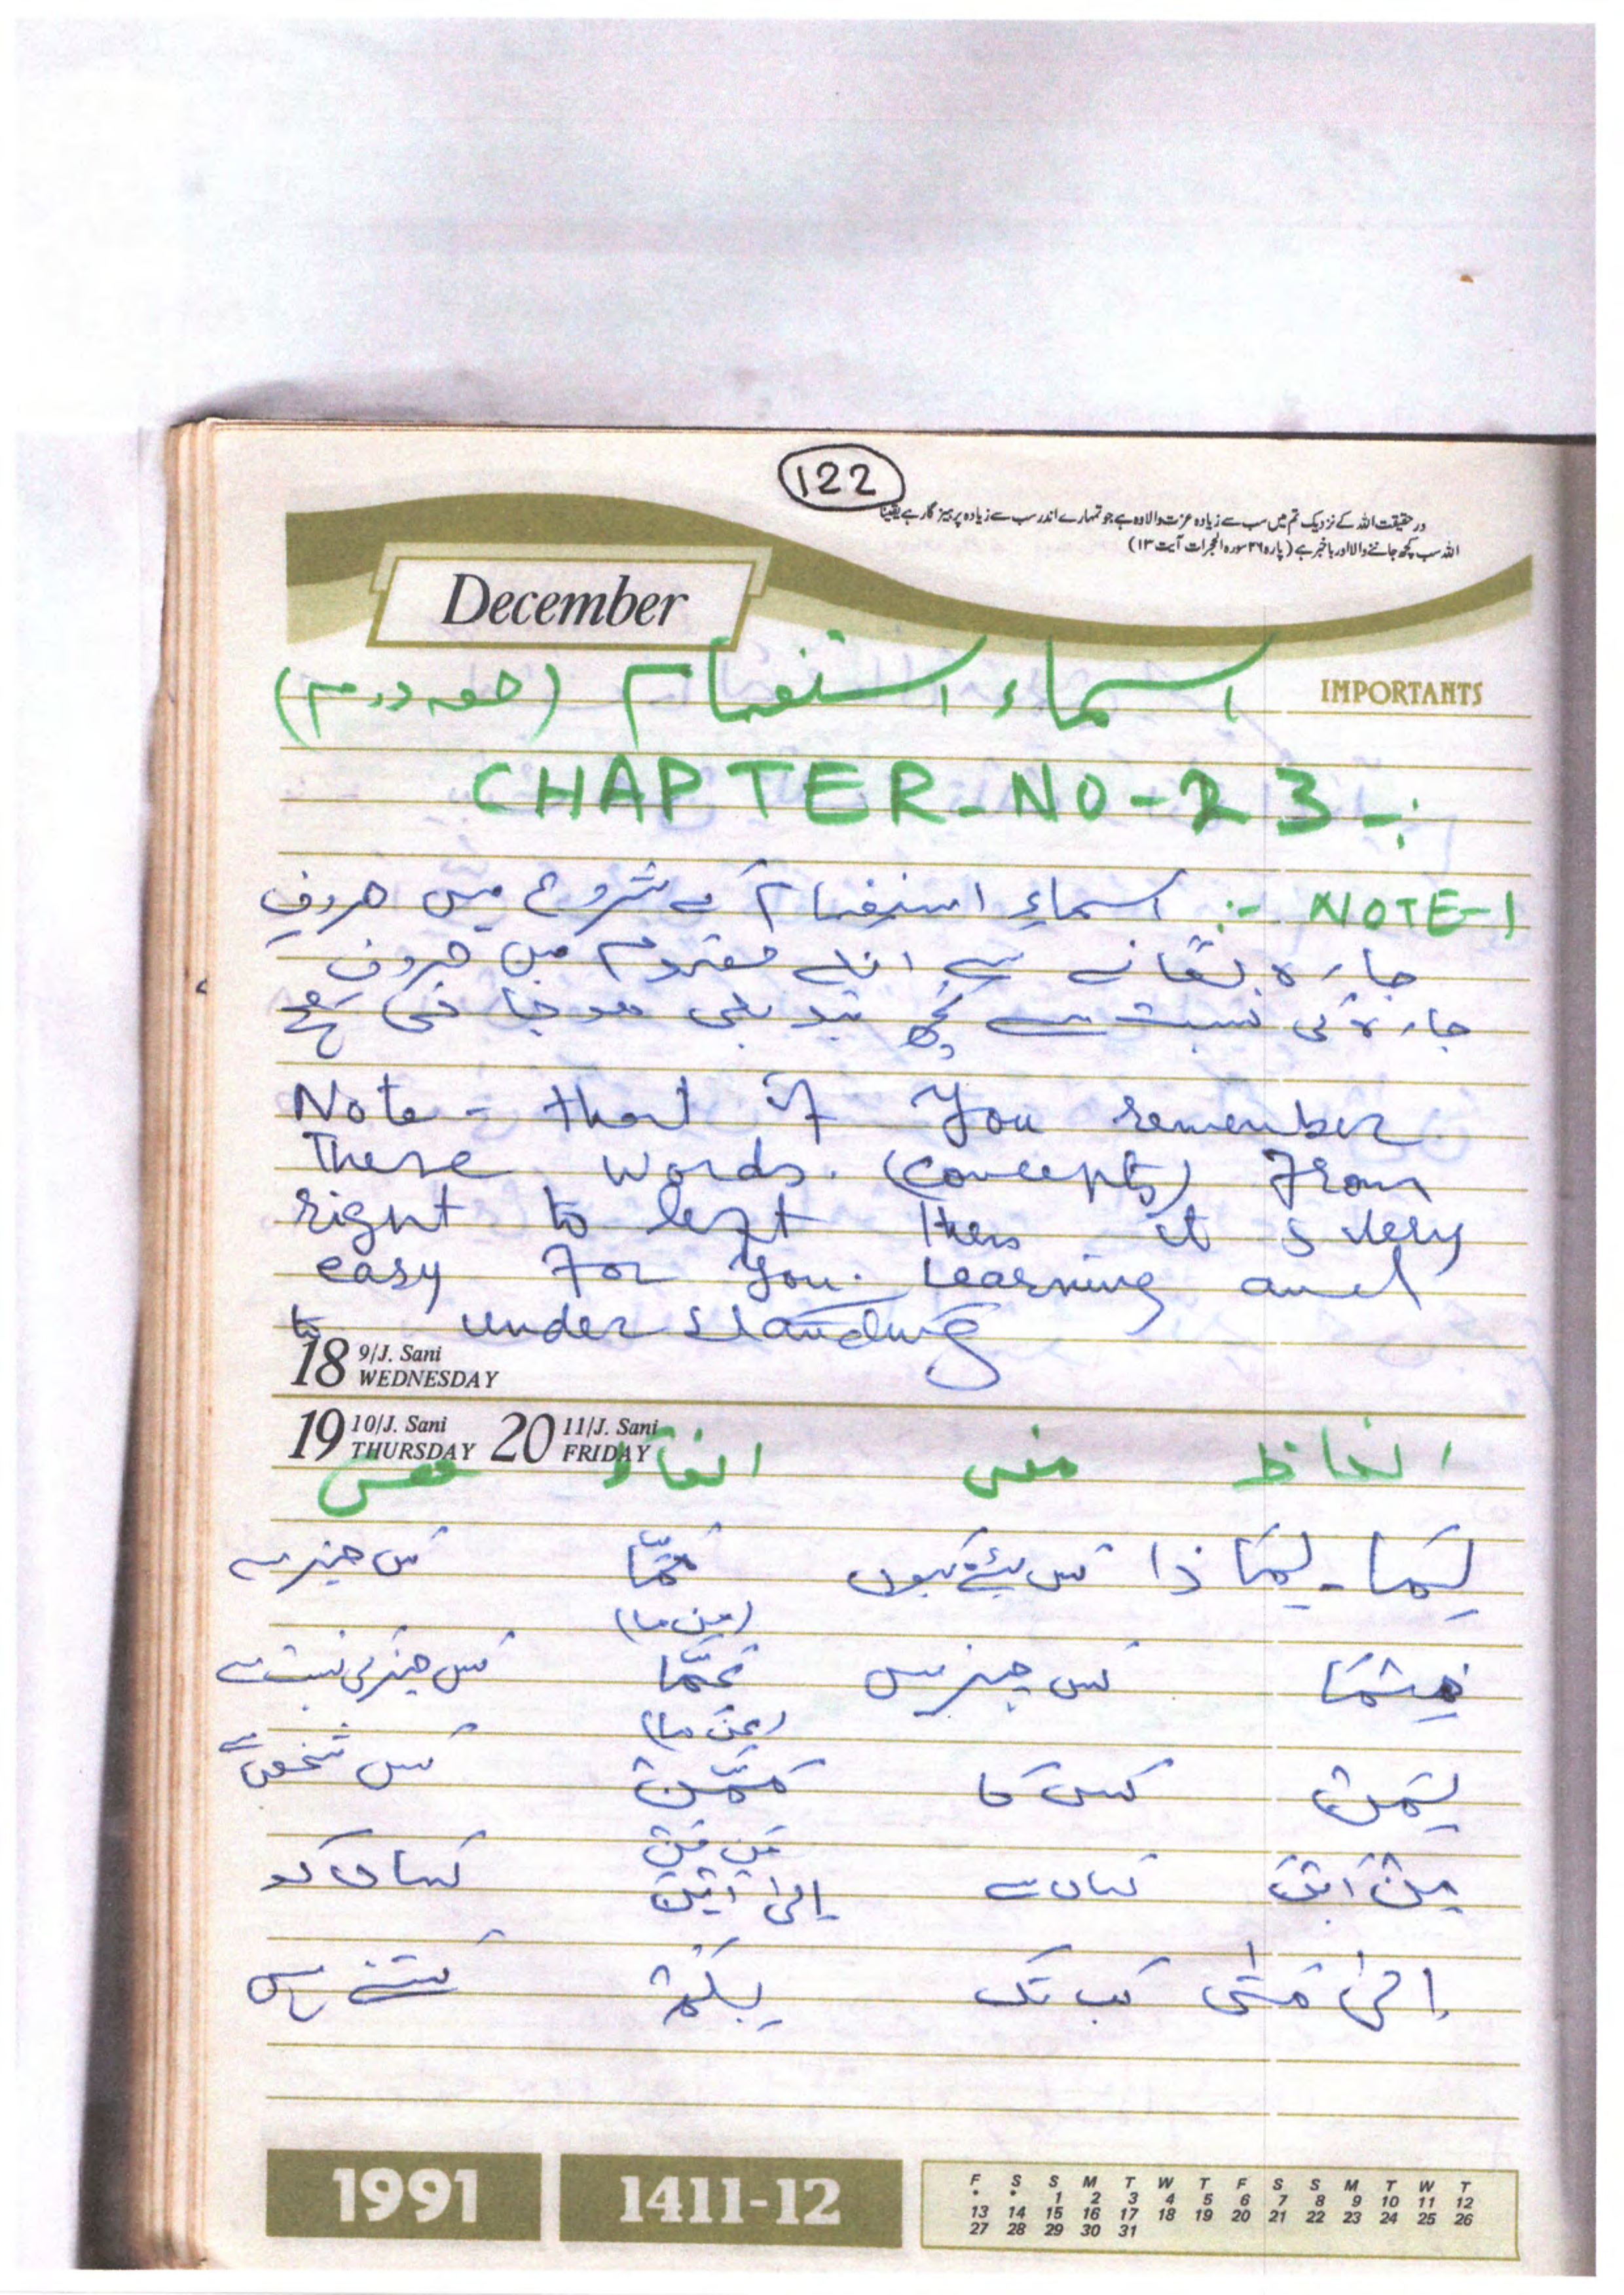 122
در حقیقت اللہ کے نزدیک تم میں سب سے زیادہ عزت والا وہ ہے جو تمہارے اندر سب سے زیادہ پرہیز گار ہے یقیناً
اللہ سب کچھ جاننے والا اور باخبر ہے (پارہ ۲۶ سورہ الحجرات آیت ۱۳)
December
IMPORTANTS
اسماء استفہام (حصہ دوم)
CHAPTER-NO-23-:
NOTE-1 -: اسماءِ استفہام کے شروع میں حروفِ
جارہ لگانے سے انکے مفہوم میں حروف
جارہ کی نسبت سے کچھ تبدیلی ہو جاتی ہے
Note - that if you remember
These words. (concepts) From
right to left then it s very
easy For you. Learning and
to under standing
18 9/J. Sani WEDNESDAY
19 10/J. Sani THURSDAY 20 11/J. Sani FRIDAY
الفاظ معنی الفاظ معنی
لِمَا - لِمَا ذا کس لئے کیوں مِمَّا کس چیز سے
(مِن ما)
کس چیز میں عَمَّا کس چیز کی نسبت سے
(عَن ما)
لِمَنْ کس کا مِمَّنْ کس شخص سے
مِن مَنْ
مِنْ اَیْنَ کہاں سے اِلیٰ اَیْنَ کہاں کو
اِلیٰ مَتٰی کب تک بِکَمْ کتنے میں
1991 1411-12
F S S M T W T F S S M T W T
* * 1 2 3 4 5 6 7 8 9 10 11 12
13 14 15 16 17 18 19 20 21 22 23 24 25 26
27 28 29 30 31